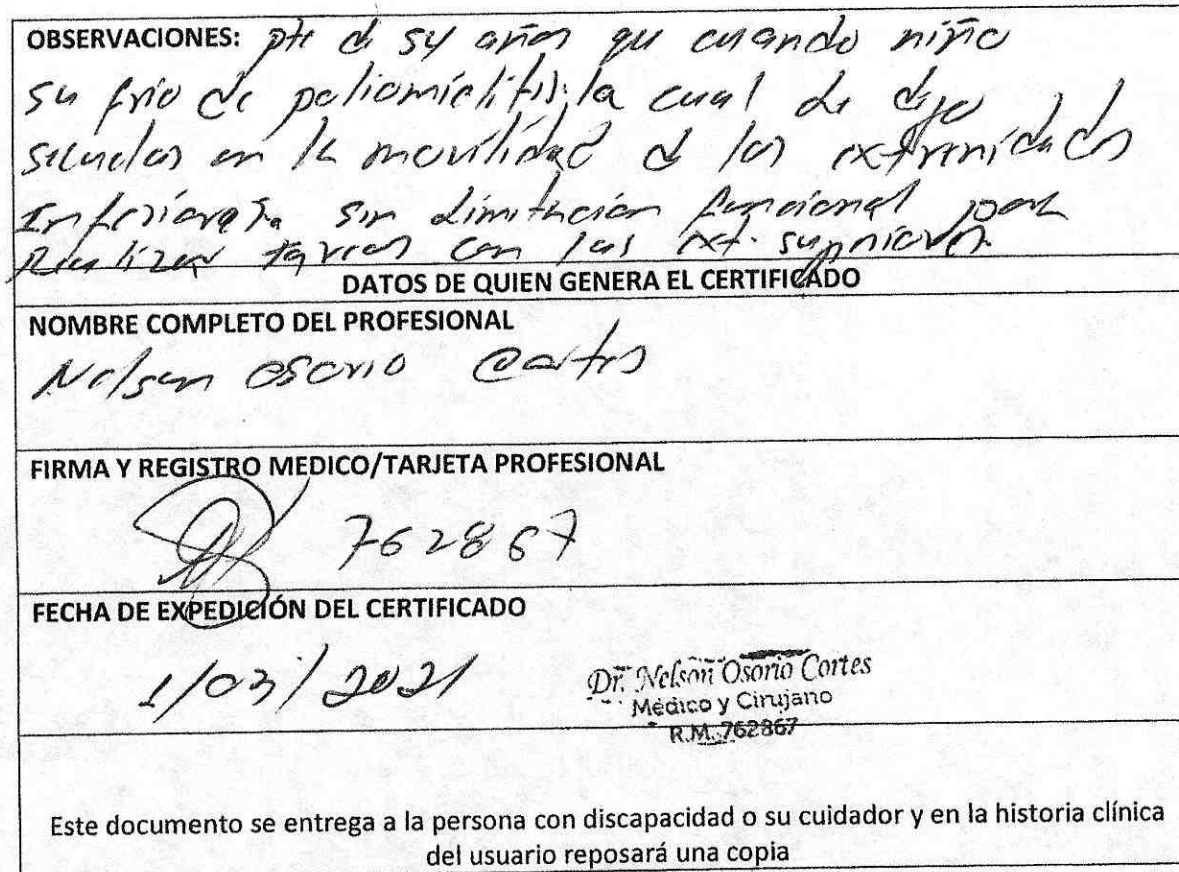 OBSERVACIONES: pte de 54 años que cuando niño
sufrio de poliomielitis, la cual le dejo
secuelas en la movilidad de las extremidades
Inferiores. sin limitacion funcional para
Realizar tareas con las ext. superiores.
DATOS DE QUIEN GENERA EL CERTIFICADO
NOMBRE COMPLETO DEL PROFESIONAL
Nelson Osorio Cortes
FIRMA Y REGISTRO MEDICO/TARJETA PROFESIONAL
762867
FECHA DE EXPEDICIÓN DEL CERTIFICADO
1/03/2021
Dr. Nelson Osorio Cortes
Médico y Cirujano
R.M. 762867
Este documento se entrega a la persona con discapacidad o su cuidador y en la historia clínica
del usuario reposará una copia